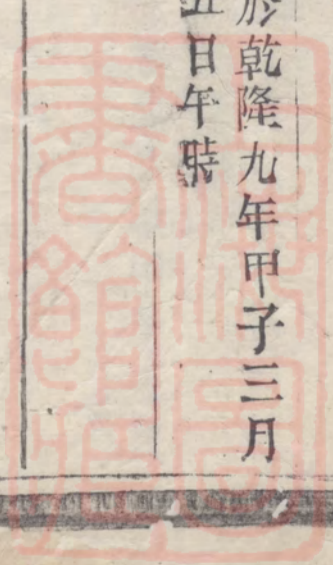 於乾隆九年甲子三月
五日午時